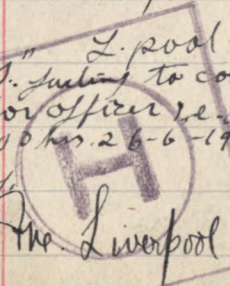 L. pool
failing to co
or officer, i.e.
0 hrs. 26-6-19
H
The. Liverpool